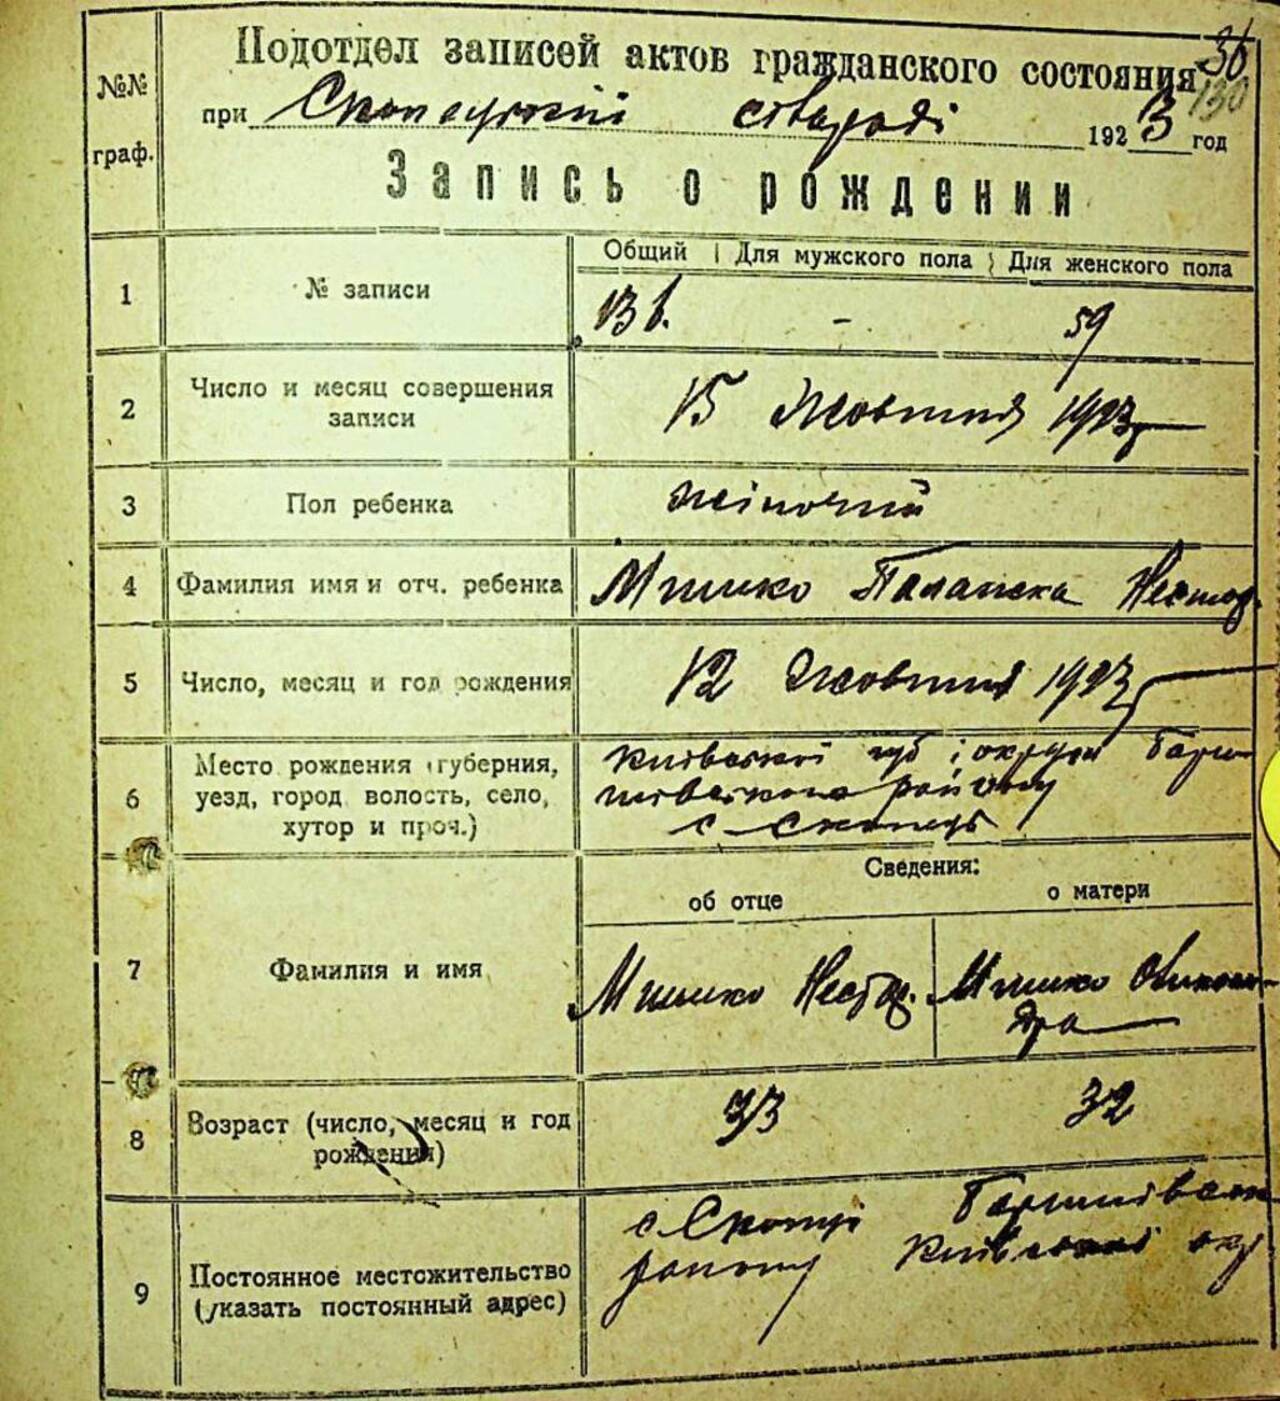 36
130
№№ граф.
Подотдел записей актов гражданского состояния
при Скопецькій сільраді 1923 год
Запись о рождении
Общий Для мужского пола Для женского пола
1 № записи - 59
2 Число и месяц совершения записи 15 Жовтня 1923
3 Пол ребенка жіночий
4 Фамилия имя и отч. ребенка Мишко Палажка Нестор.
5 Число, месяц и год рождения 12 Жовтня 1923
6 Место рождения (губерния, уезд, город волость, село, хутор и проч.)
Київської губ і округи Бари-
шівського району
с Скопці
Сведения:
об отце о матери
7 Фамилия и имя Мишко Нестор. Мишко Олександра
8 Возраст (число, месяц и год рождения) 33 32
9 Постоянное местожительство (указать постоянный адрес)
с Скопці Баришівськ
району Київської окр